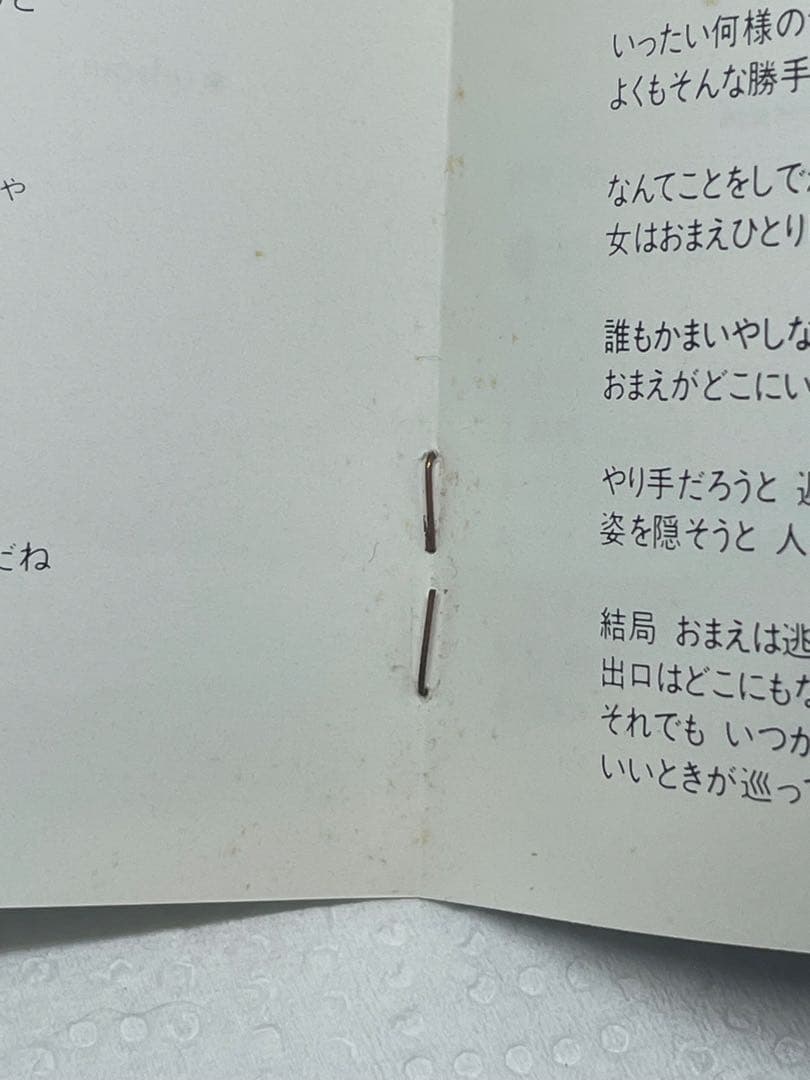 ゃ
だね
いったい何様の
よくもそんな勝手
なんてことをしで
女はおまえひとり
誰もかまいやしな
おまえがどこにい
やり手だろうと
姿を隠そうと 人
結局 おまえは逃
出口はどこにもな
それでも いつか
いいときが巡って